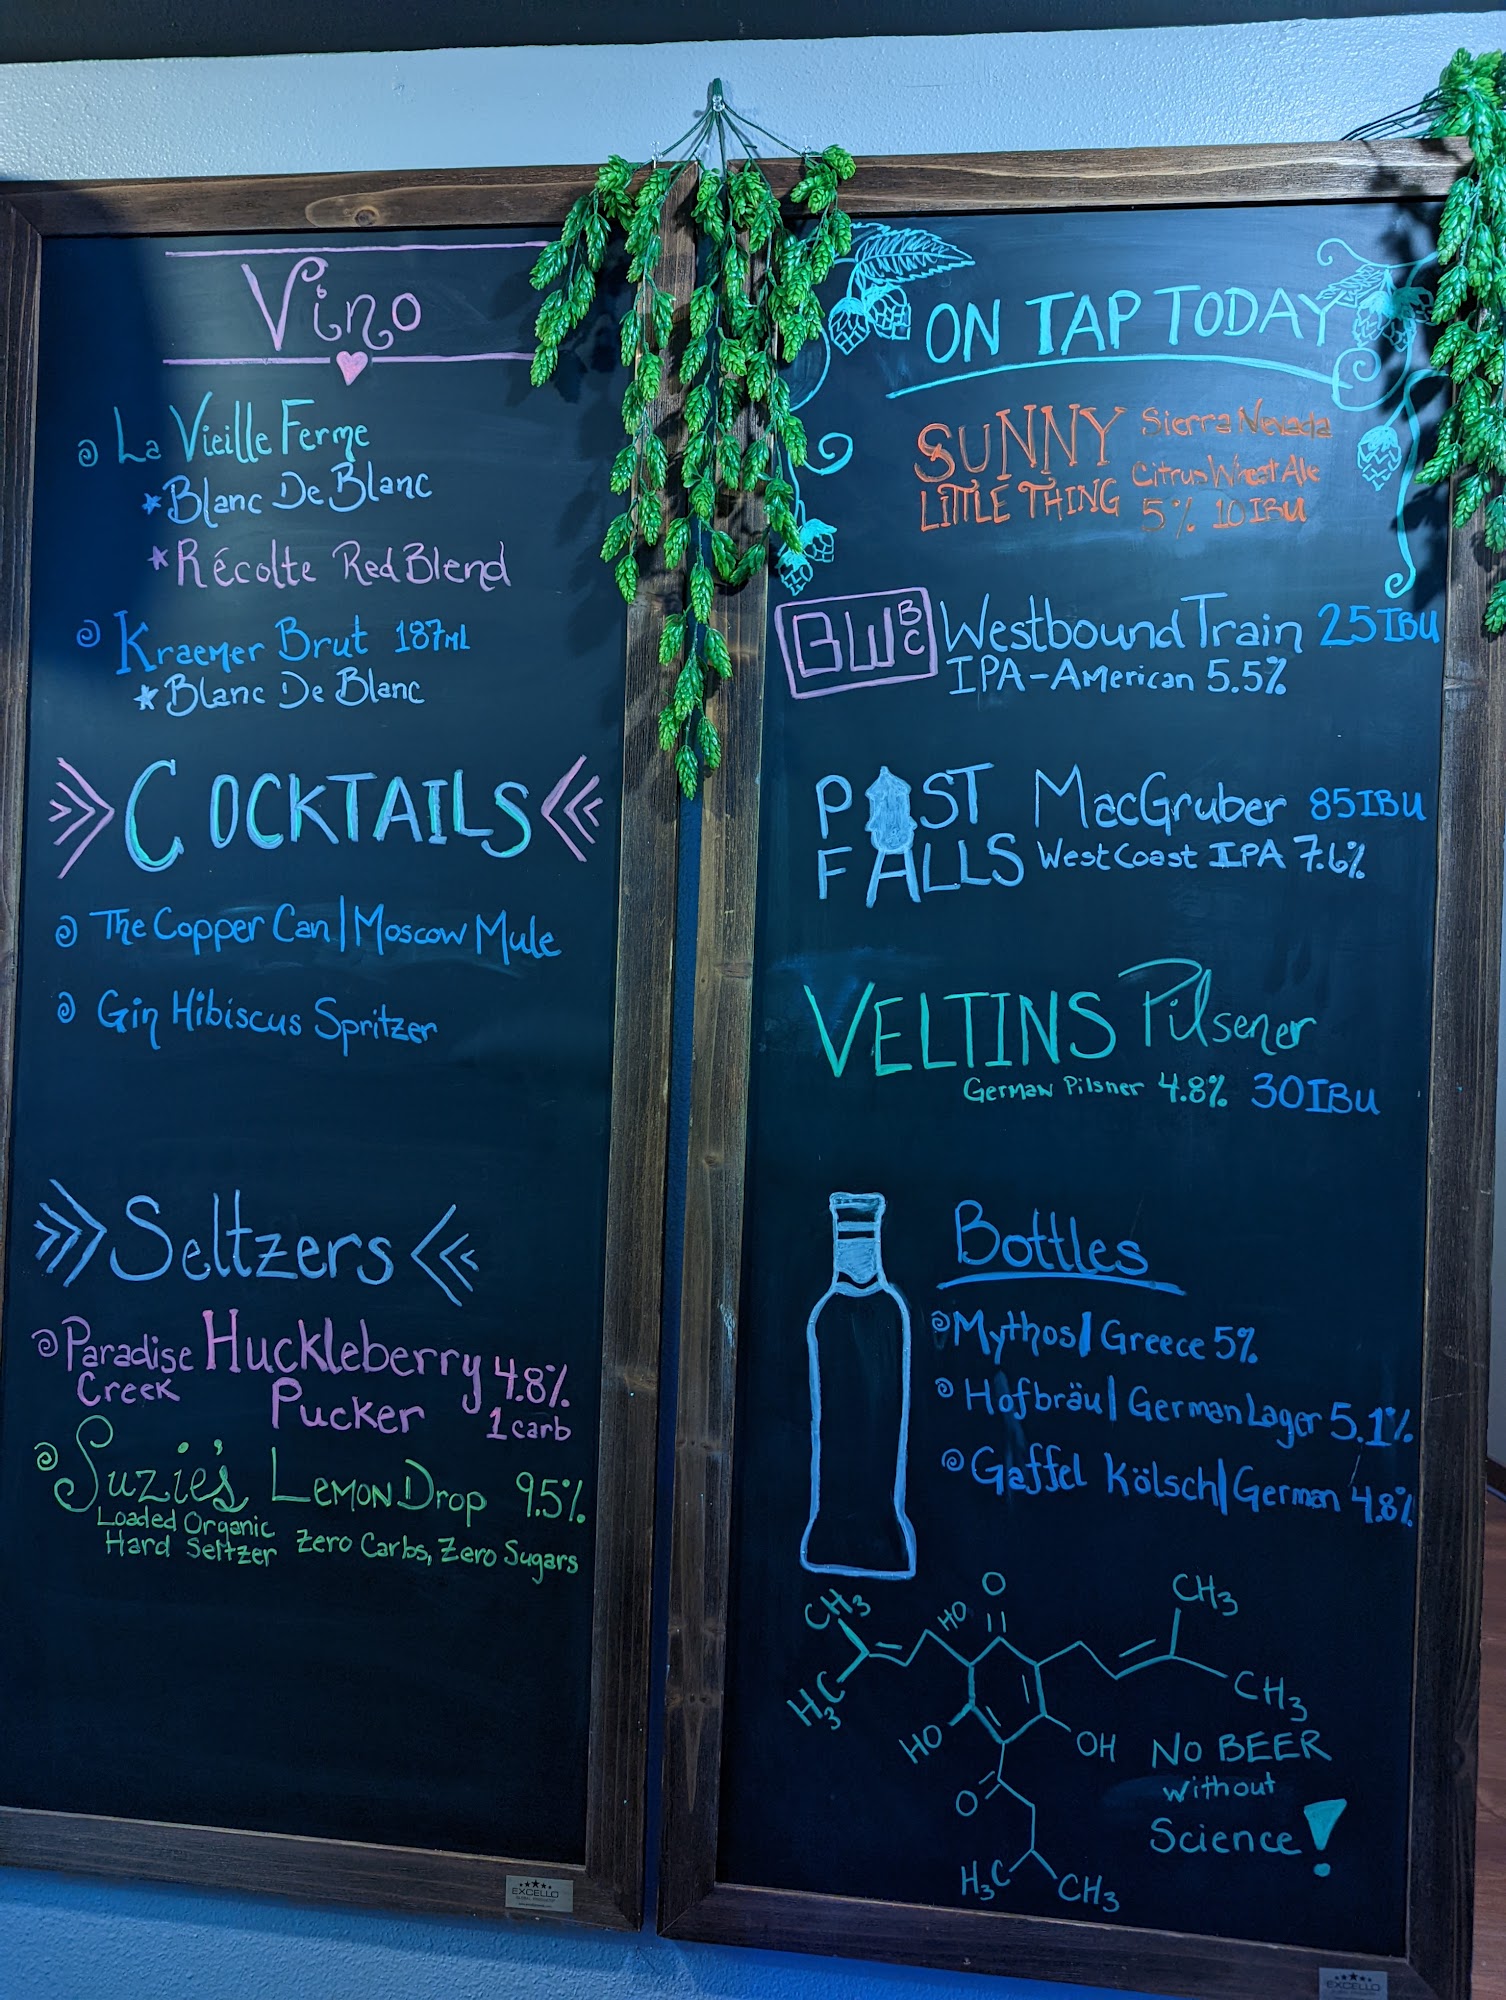 Vino
La Vieille Ferme
Blanc De Blanc
Récolte Red Blend
Kraemer Brut 187ml
Blanc De Blanc
COCKTAILS
The Copper Can | Moscow Mule
Gin Hibiscus Spritzer
Seltzers
Paradise Creek Huckleberry Pucker 4.8%
1 carb
Suzie's Lemon Drop 9.5%
Loaded Organic
Hard Seltzer Zero Carbs, Zero Sugars
EXCELLO
ON TAP TODAY
SUNNY Sierra Nevada
LITTLE THING Citrus Wheat Ale
5% 10 IBU
BWBC Westbound Train 25 IBU
IPA - American 5.5%
POST MacGruber 85 IBU
FALLS West Coast IPA 7.6%
VELTINS Pilsener
German Pilsner 4.8% 30 IBU
Bottles
Mythos | Greece 5%
Hofbräu | German Lager 5.1%
Gaffel Kölsch | German 4.8%
CH3
H3C
HO
O
CH3
CH3
HO
OH
O
H3C
CH3
No BEER
without
Science!
EXCELLO